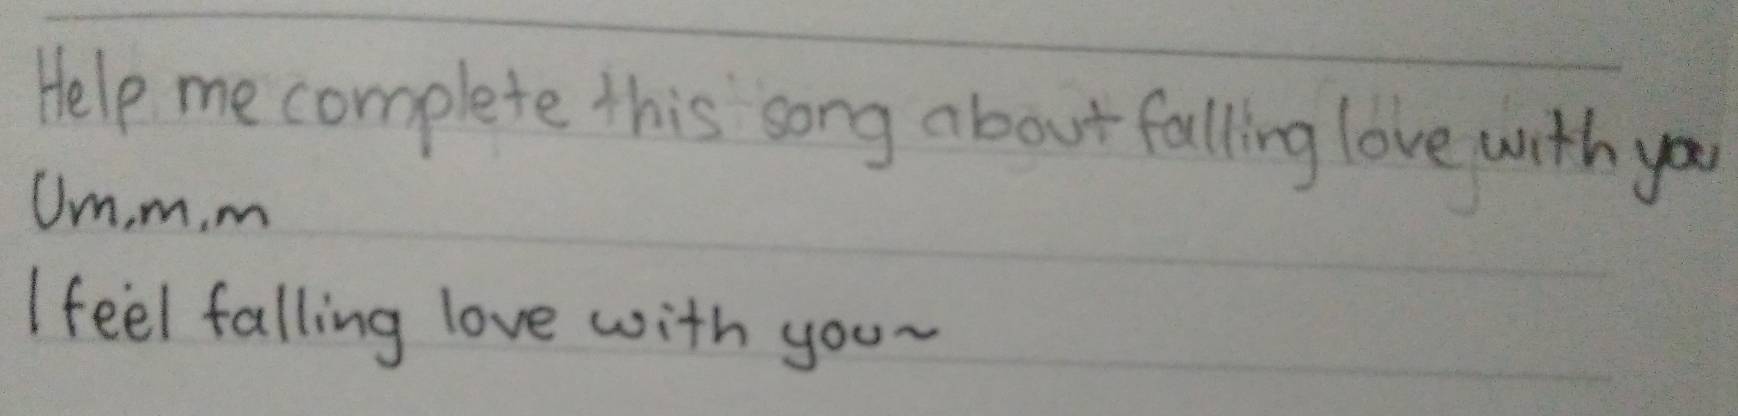 Help me complete this song about falling love with you
Um.m.m
I feel falling love with you~